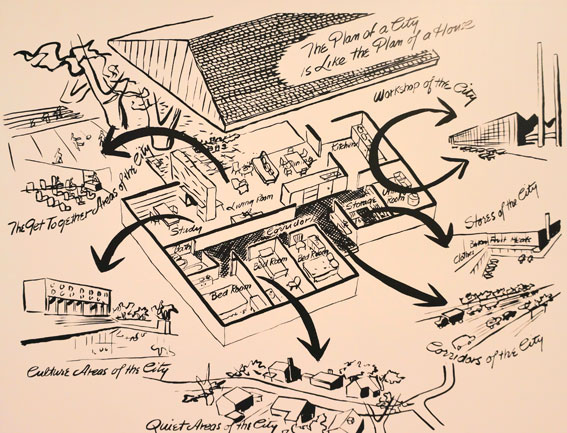 The Plan of a City
is Like the Plan of a House
Workshop of the City
The Get Together Areas of the City
Kitchen
Dining
Living Room
Study
Corridor
Storage
Utility
Room
Bath
Bed Room
Bed Room
Bed Room
Stores of the City
Clothes
Bakery
Fruit
Meats
Culture Areas of the City
Corridors of the City
Quiet Areas of the City